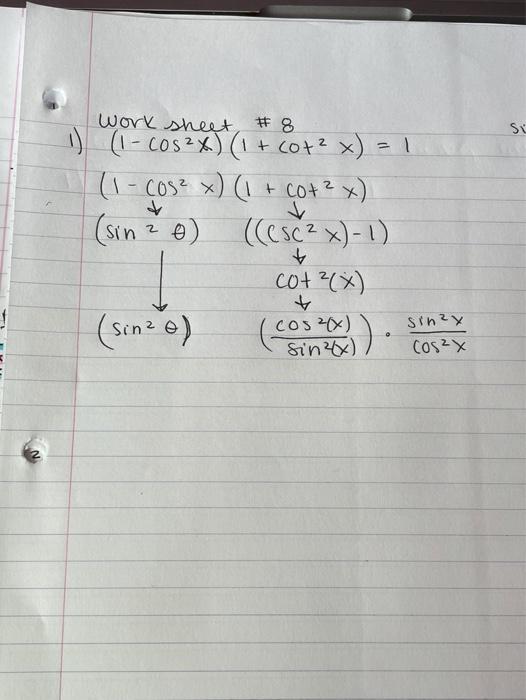 work sheet # 8
1) (1 - cos²x)(1 + cot² x) = 1
(1 - cos² x)(1 + cot² x)
↓ ↓
(sin² θ) ((csc² x)-1)
↓
cot²(x)
↓ ↓
(sin² θ) (cos²(x)/sin²(x)) · sin²x/cos²x
2